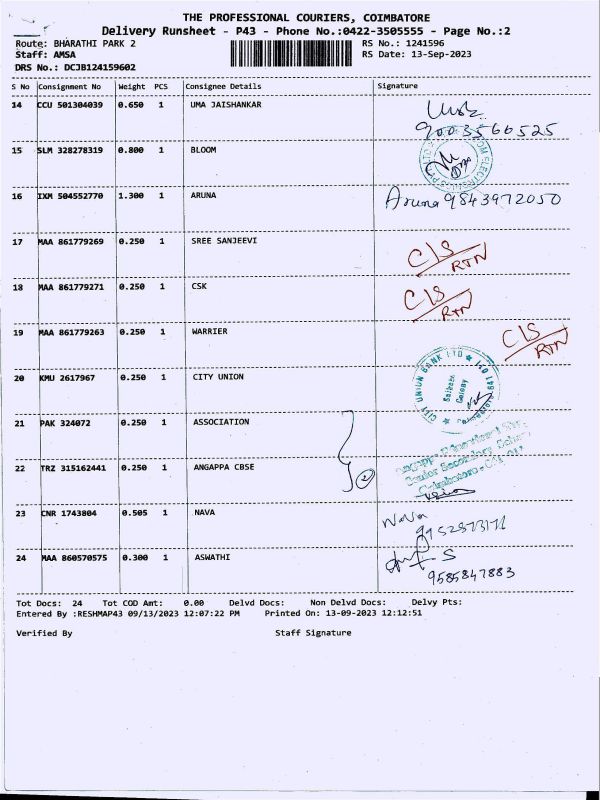 THE PROFESSIONAL COURIERS, COIMBATORE
Delivery Runsheet - P43 - Phone No.:0422-3505555 - Page No.:2
Route: BHARATHI PARK 2 RS No.: 1241596
Staff: AMSA RS Date: 13-Sep-2023
DRS No.: DCJB124159602
S No Consignment No Weight PCS Consignee Details Signature
14 CCU 501304039 0.650 1 UMA JAISHANKAR
9003566525
15 SLM 328278319 0.800 1 BLOOM
16 IXM 504552770 1.300 1 ARUNA Aruna 9843972050
17 MAA 861779269 0.250 1 SREE SANJEEVI C/S RTN
18 MAA 861779271 0.250 1 CSK C/S RTN
19 MAA 861779263 0.250 1 WARRIER C/S RTN
20 KMU 2617967 0.250 1 CITY UNION CITY UNION BANK LTD
Saibaba Colony
21 PAK 324072 0.250 1 ASSOCIATION
22 TRZ 315162441 0.250 1 ANGAPPA CBSE 2 Senior Secondary School
Coimbatore
23 CNR 1743804 0.505 1 NAVA Nava
24 MAA 860570575 0.300 1 ASWATHI S
9585847883
Tot Docs: 24 Tot COD Amt: 0.00 Delvd Docs: Non Delvd Docs: Delvy Pts:
Entered By :RESHMAP43 09/13/2023 12:07:22 PM Printed On: 13-09-2023 12:12:51
Verified By Staff Signature